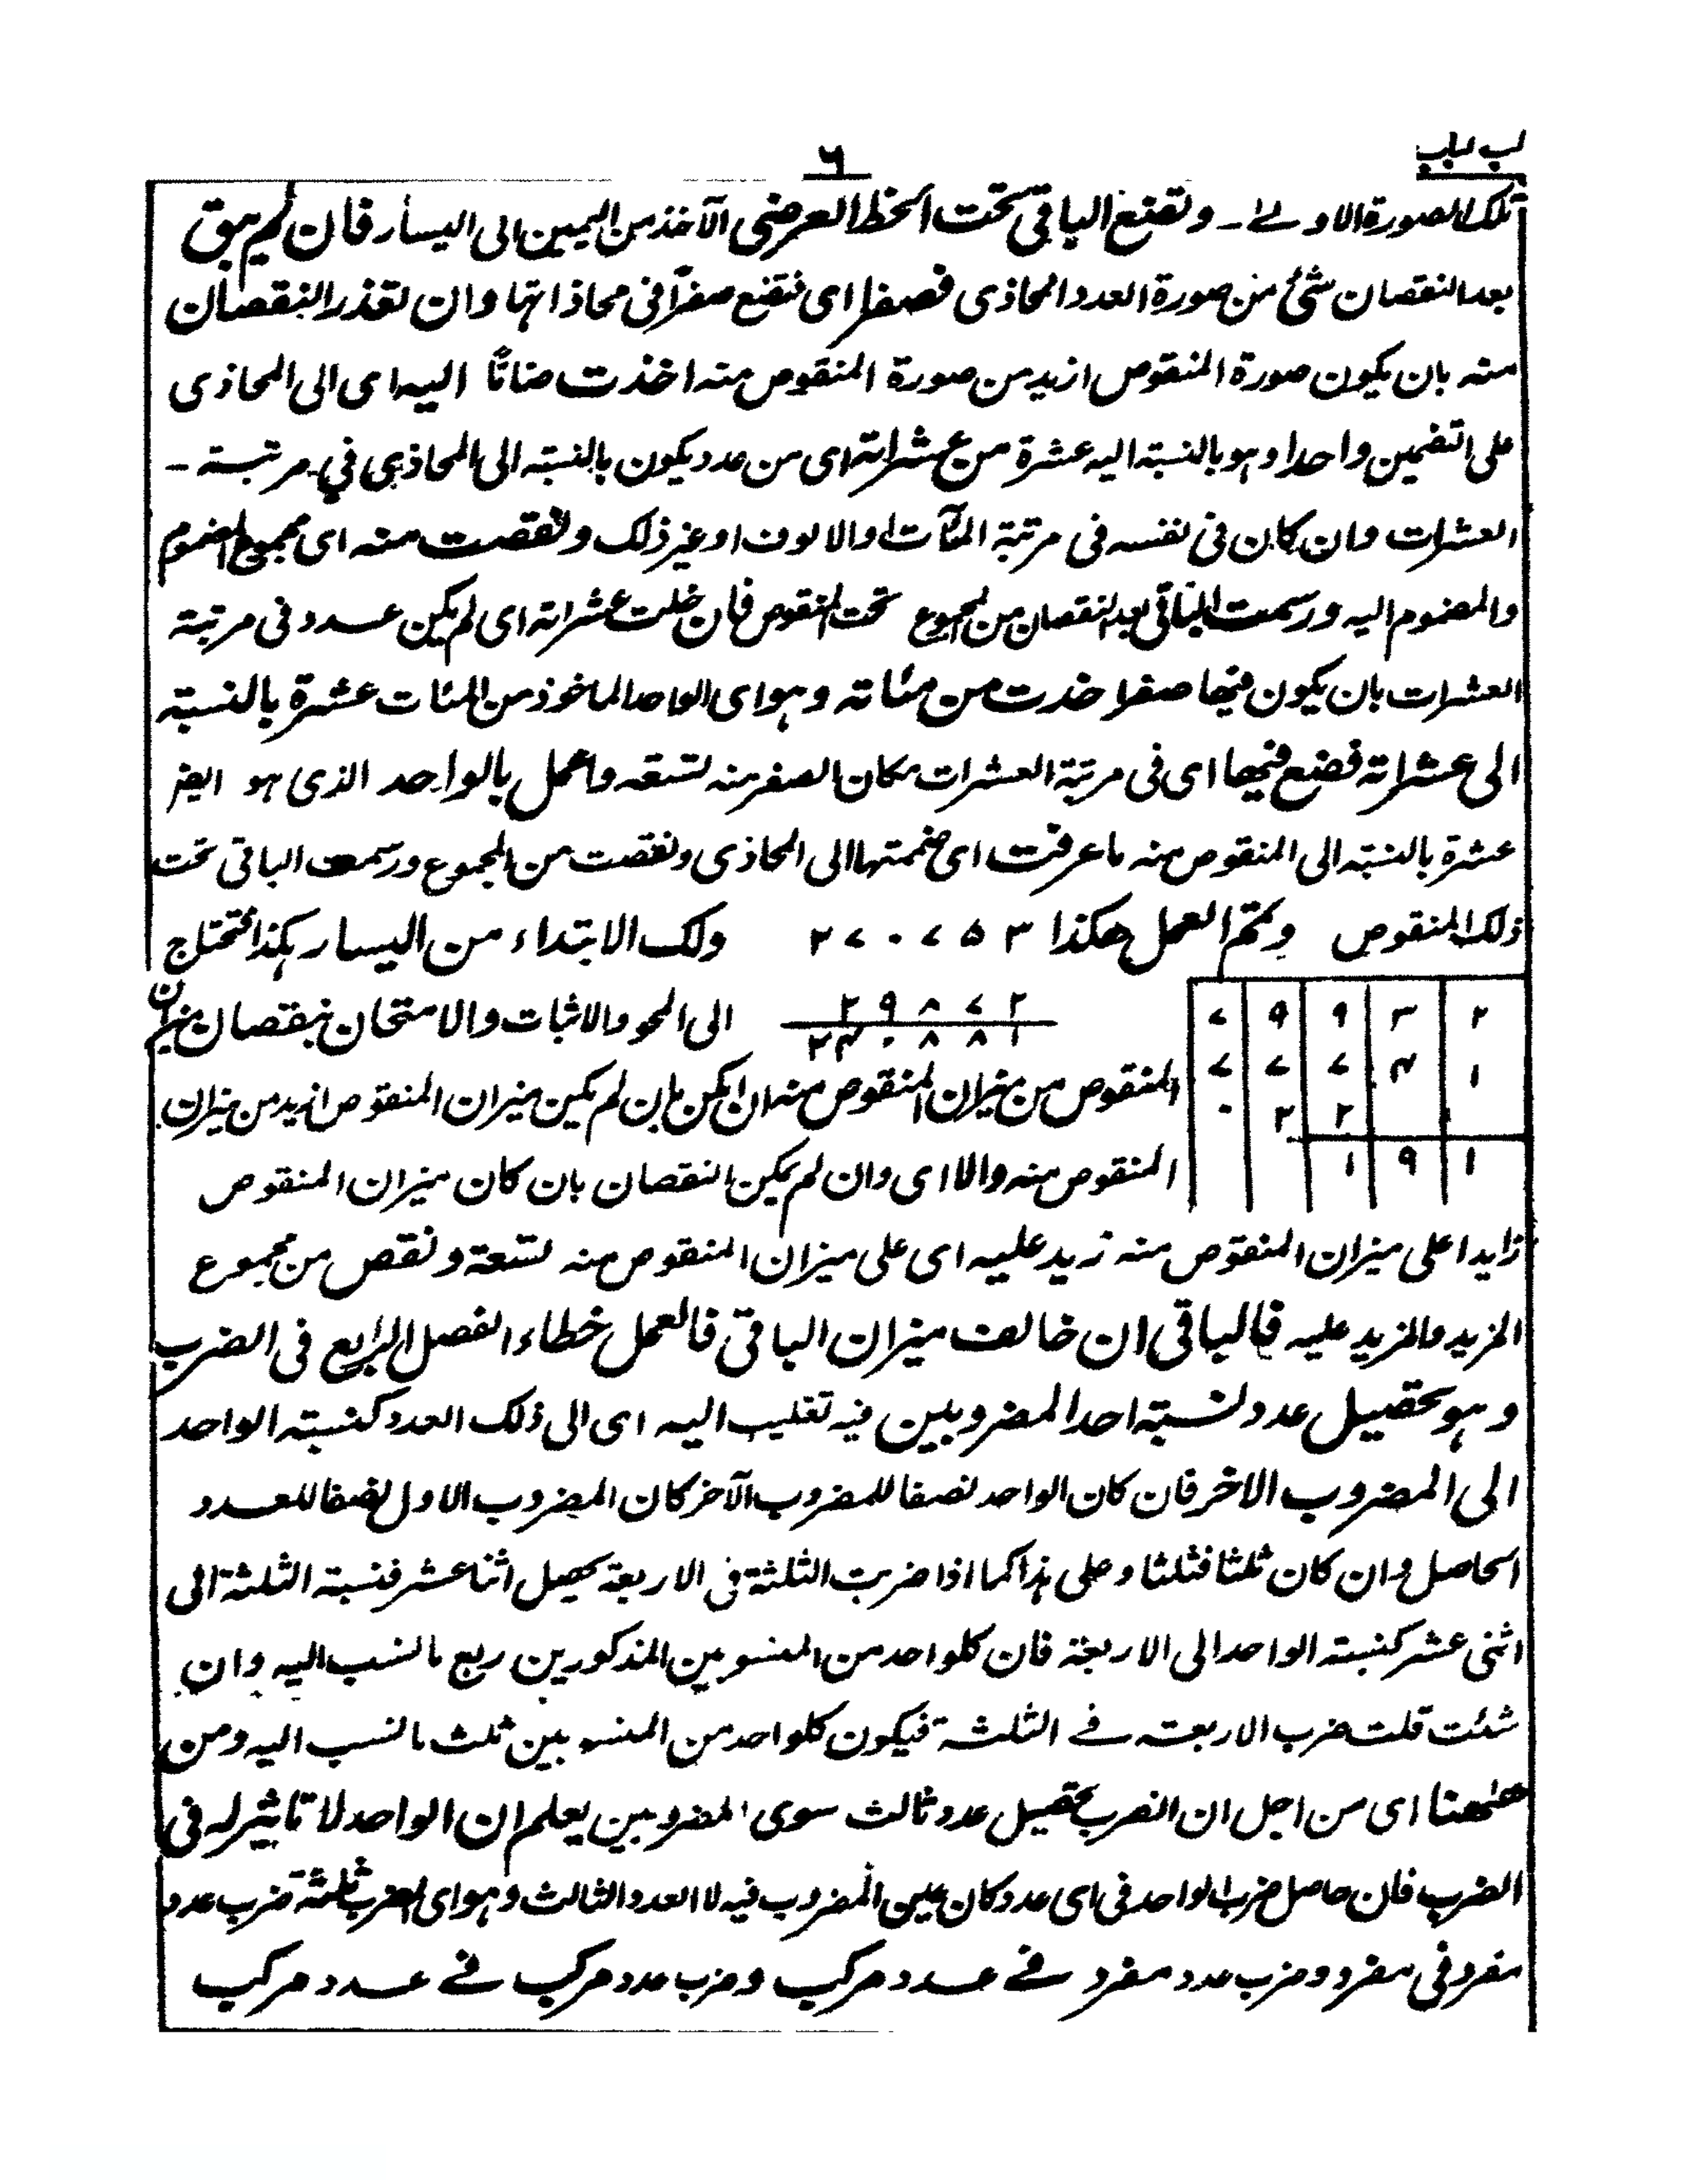 لب لباب
٦
تلك الصورة الاولے ـ وتضع الباقی تحت الخط العرضی الآخذ من الیمین الی الیسار فان لم یبق
بعد النقصان شئ من صورة العدد المحاذی فصفرا ای فتضع صفراً فی محاذاتها وان تعذر النقصان
منه بان یکون صورة المنقوص ازید من صورة المنقوص منه اخذت ضامًا الیه ای الی المحاذی
علی التضمین واحدا وهو بالنسبة الیه عشرة من عشراته ای من عدد یکون بالنسبة الی المحاذی فی مرتبة ـ
العشرات وان کان فی نفسه فی مرتبة المآت او الالوف او غیر ذلک ونقصت منه ای مجموع المضموم
والمضموم الیه ورسمت الباقی بعد النقصان من المجموع تحت المنقوص فان خلت عشراته ای لم یکن عدد فی مرتبة
العشرات بان یکون فیها صفر اخذت من مئاته وهو ای الواحد الماخوذ من المئات عشرة بالنسبة
الی عشراته فضع فیها ای فی مرتبة العشرات مکان الصفر منه تسعة واعمل بالواحد الذی هو ایضر
عشرة بالنسبة الی المنقوص منه ما عرفت ای ضممتها الی المحاذی ونقصت من المجموع ورسمت الباقی تحت
ذلک المنقوص ویتم العمل هکذا ٢٧٠٧٥٣ ولک الابتداء من الیسار هکذا فتحتاج
٢ ٩ ٨ ٧ ٢
الی المحو والاثبات والامتحان بنقصان میزان
٢ ٤ ٠ ٨ ٨ ١
٧ ٩ ٩ ٣ ٢
٧ ٧ ٧ ٤ ١
٠ ٢ ٢
١ ٩ ١
المنقوص من میزان المنقوص منه ان امکن بان لم یکن میزان المنقوص ازید من میزان
المنقوص منه والا ای وان لم یکن النقصان بان کان میزان المنقوص
زایدا علی میزان المنقوص منه زید علیه ای علی میزان المنقوص منه تسعة ونقص من مجموع
المزید والمزید علیه فالباقی ان خالف میزان الباقی فالعمل خطاء الفصل الرابع فی الضرب
وهو تحصیل عدد نسبة احد المضروبین فیه تغلیب الیه ای الی ذلک العدد کنسبة الواحد
الی المضروب الاخر فان کان الواحد نصفا للمضروب الآخر کان المضروب الاول نصفا للعدد
الحاصل وان کان ثلثا فثلثا وعلی هذا کما اذا ضربت الثلثة فی الاربعة یحصل اثنا عشر فنسبة الثلثة الی
اثنی عشر کنسبة الواحد الی الاربعة فان کلواحد من المنسوبین المذکورین ربع مالنسب الیه وان
شئت قلت ضرب الاربعة فے الثلثة فیکون کلواحد من المنسوبین ثلث مالنسب الیه ومن
ههنا ای من اجل ان الضرب تحصیل عدد ثالث سوی المضروبین یعلم ان الواحد لا تاثیر له فی
الضرب فان حاصل ضرب الواحد فی ای عدد کان عین المضروب فیه لا العدد الثالث وهو ای الضرب ثلثة ضرب عدد
مفرد فی مفرد وضرب عدد مفرد فے عدد مرکب وضرب عدد مرکب فے عدد مرکب